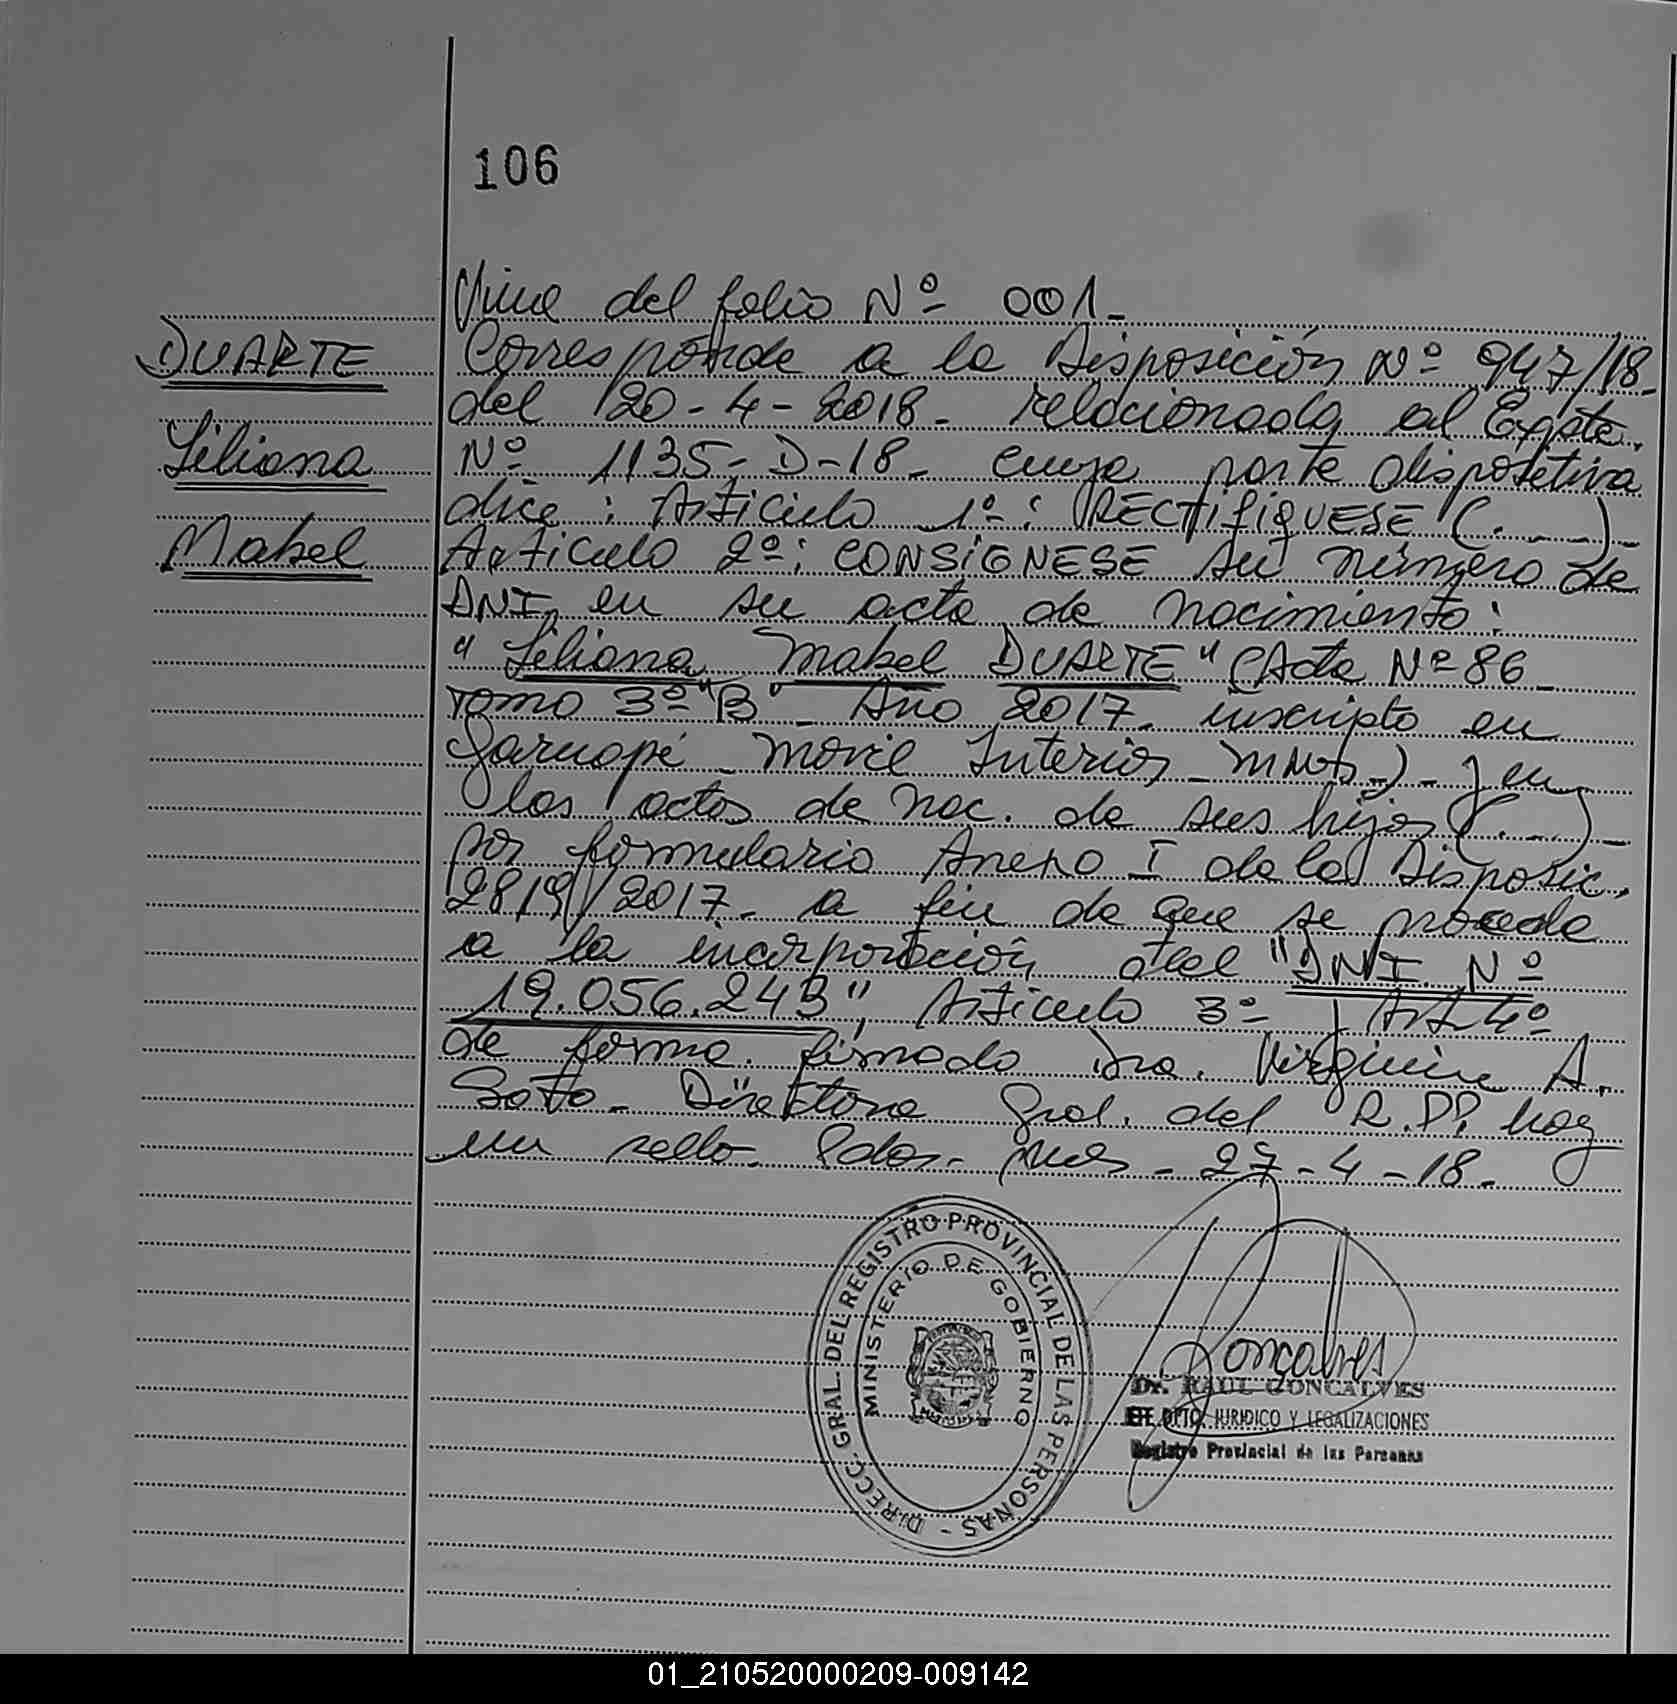 106
Viene del folio Nº 001-
DUARTE
Liliana
Mabel
Corresponde a la Disposición Nº 947/18-
del 20-4-2018- relacionada al Expte.
Nº 1135-D-18- cuya parte dispositiva
dice: Articulo 1º: RECTIFIQUESE (...)-
Articulo 2º: CONSIGNESE su número de
DNI, en su acta de nacimiento:
"Liliana Mabel DUARTE" (Acta Nº 86-
Tomo 3º "B" - Año 2017. inscripto en
Garuapé - Movil Interior - Mnes.)- y en
las actas de nac. de sus hijos (...)-
por formulario Anexo I de la Disposic.
2819/2017- a fin de que se proceda
a la incorporación del "DNI Nº
19.056.243", Articulo 3º y Art. 4º
de forma. firmado Dra. Virginia A.
Soto- Directora Gral. del R.PP. hay
un sello- Pdas- Mnes- 27-4-18-
DIRECC. GRAL. DEL REGISTRO PROVINCIAL DE LAS PERSONAS -
MINISTERIO DE GOBIERNO
Goncalves
Dr. RAUL GONCALVES
JEFE DPTO. JURIDICO Y LEGALIZACIONES
Registro Provincial de las Personas
01_210520000209-009142